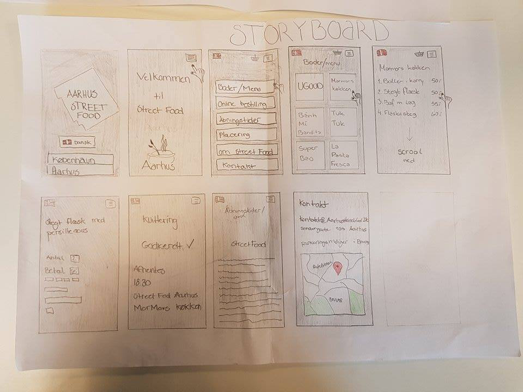 STORYBOARD
AARHUS
STREET
FOOD
Dansk
København
Aarhus
Velkommen
til
Street Food
Aarhus
Boder/Menu
Online bestilling
Åbningstider
Placering
om Street Food
Kontakt
Boder/menu
UGOOD
Mormors
køkken
Banh
mi
Bandits
Tuk
Tuk
Super
Bao
La
Pasta
Fresca
Mormors køkken
1. Boller i karry 50,-
2. Stegt flæsk
scroll
ned
Stegt flæsk med
persillesovs
Antal
Betal
Kvittering
Godkendt ✓
Afhentes
Street Food Aarhus
Mormors Køkken
Åbningstider/
Street Food
Kontakt